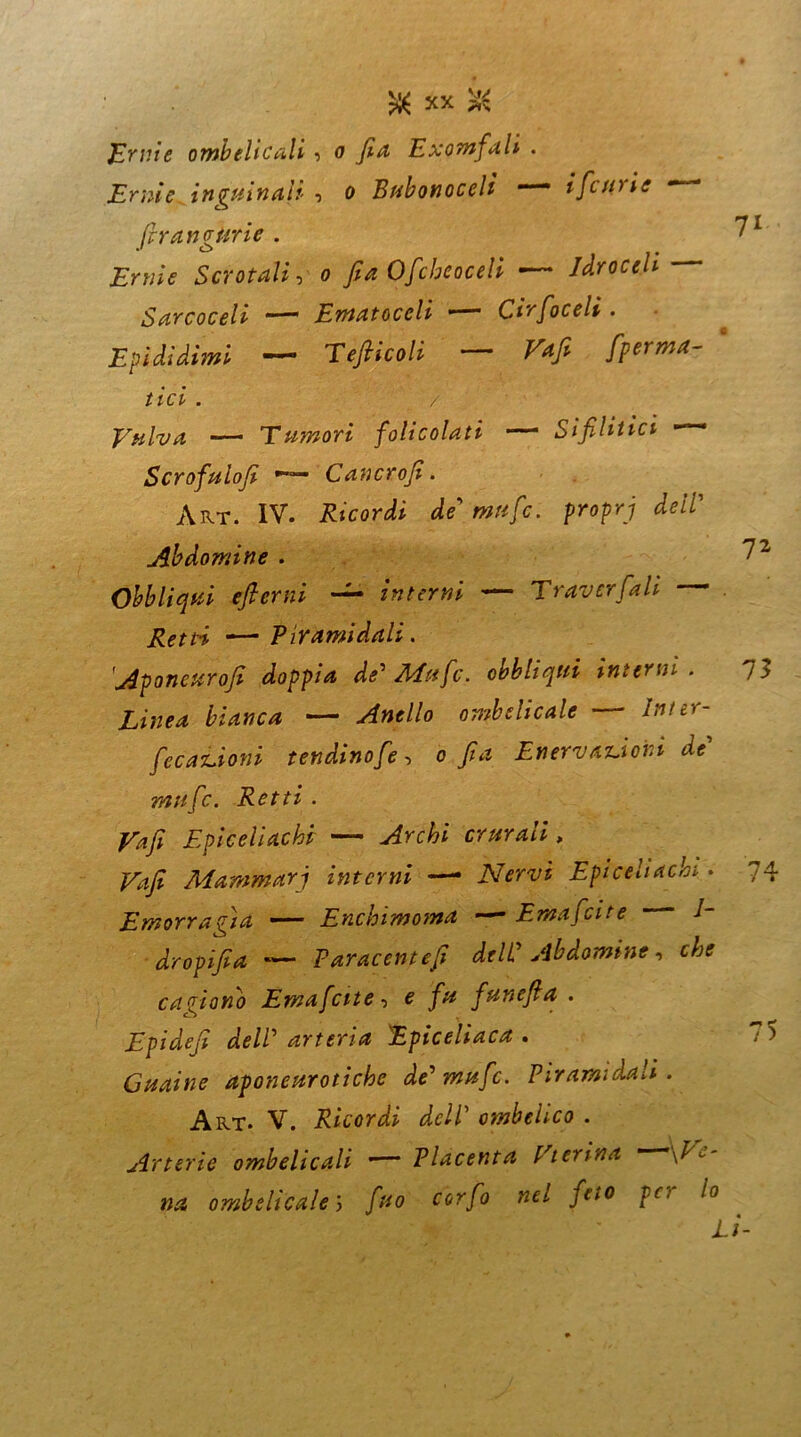 ⁜ xx ⁜
Ernie ombelicali, o ſia Exomfali.
Ernie inguinali, o Bubonoceli — iſcurie —
ſtrangurie. 71
Ernie Scrotali, o ſia Oſcheoceli — Idroceli —
Sarcoceli — Ematoceli — Cirſoceli.
Epididimi — Teſticoli — Vaſi ſperma-
tici.
Vulva — Tumori folicolati — Sifilitici —
Scrofuloſi — Cancroſi.
Art. IV. Ricordi de' muſc. proprj dell'
Abdomine. 72
Obbliqui eſterni — interni — Traverſali —
Retti — Piramidali.
Aponeuroſi doppia de' Muſc. obbliqui interni. 73
Linea bianca — Anello ombelicale — Inter-
ſecazioni tendinoſe, o ſia Enervazioni de'
muſc. Retti.
Vaſi Epiceliachi — Archi crurali,
Vaſi Mammarj interni — Nervi Epiceliachi. 74
Emorragìa — Enchimoma — Emaſcite — I-
dropiſia — Paracenteſi dell' Abdomine, che
cagionò Emaſcite, e fu funeſta.
Epideſi dell' arteria Epiceliaca. 75
Guaine aponeurotiche de' muſc. Piramidali.
Art. V. Ricordi dell' ombelico.
Arterie ombelicali — Placenta Uterina — Ve-
na ombelicale; ſuo corſo nel feto per lo
Li-